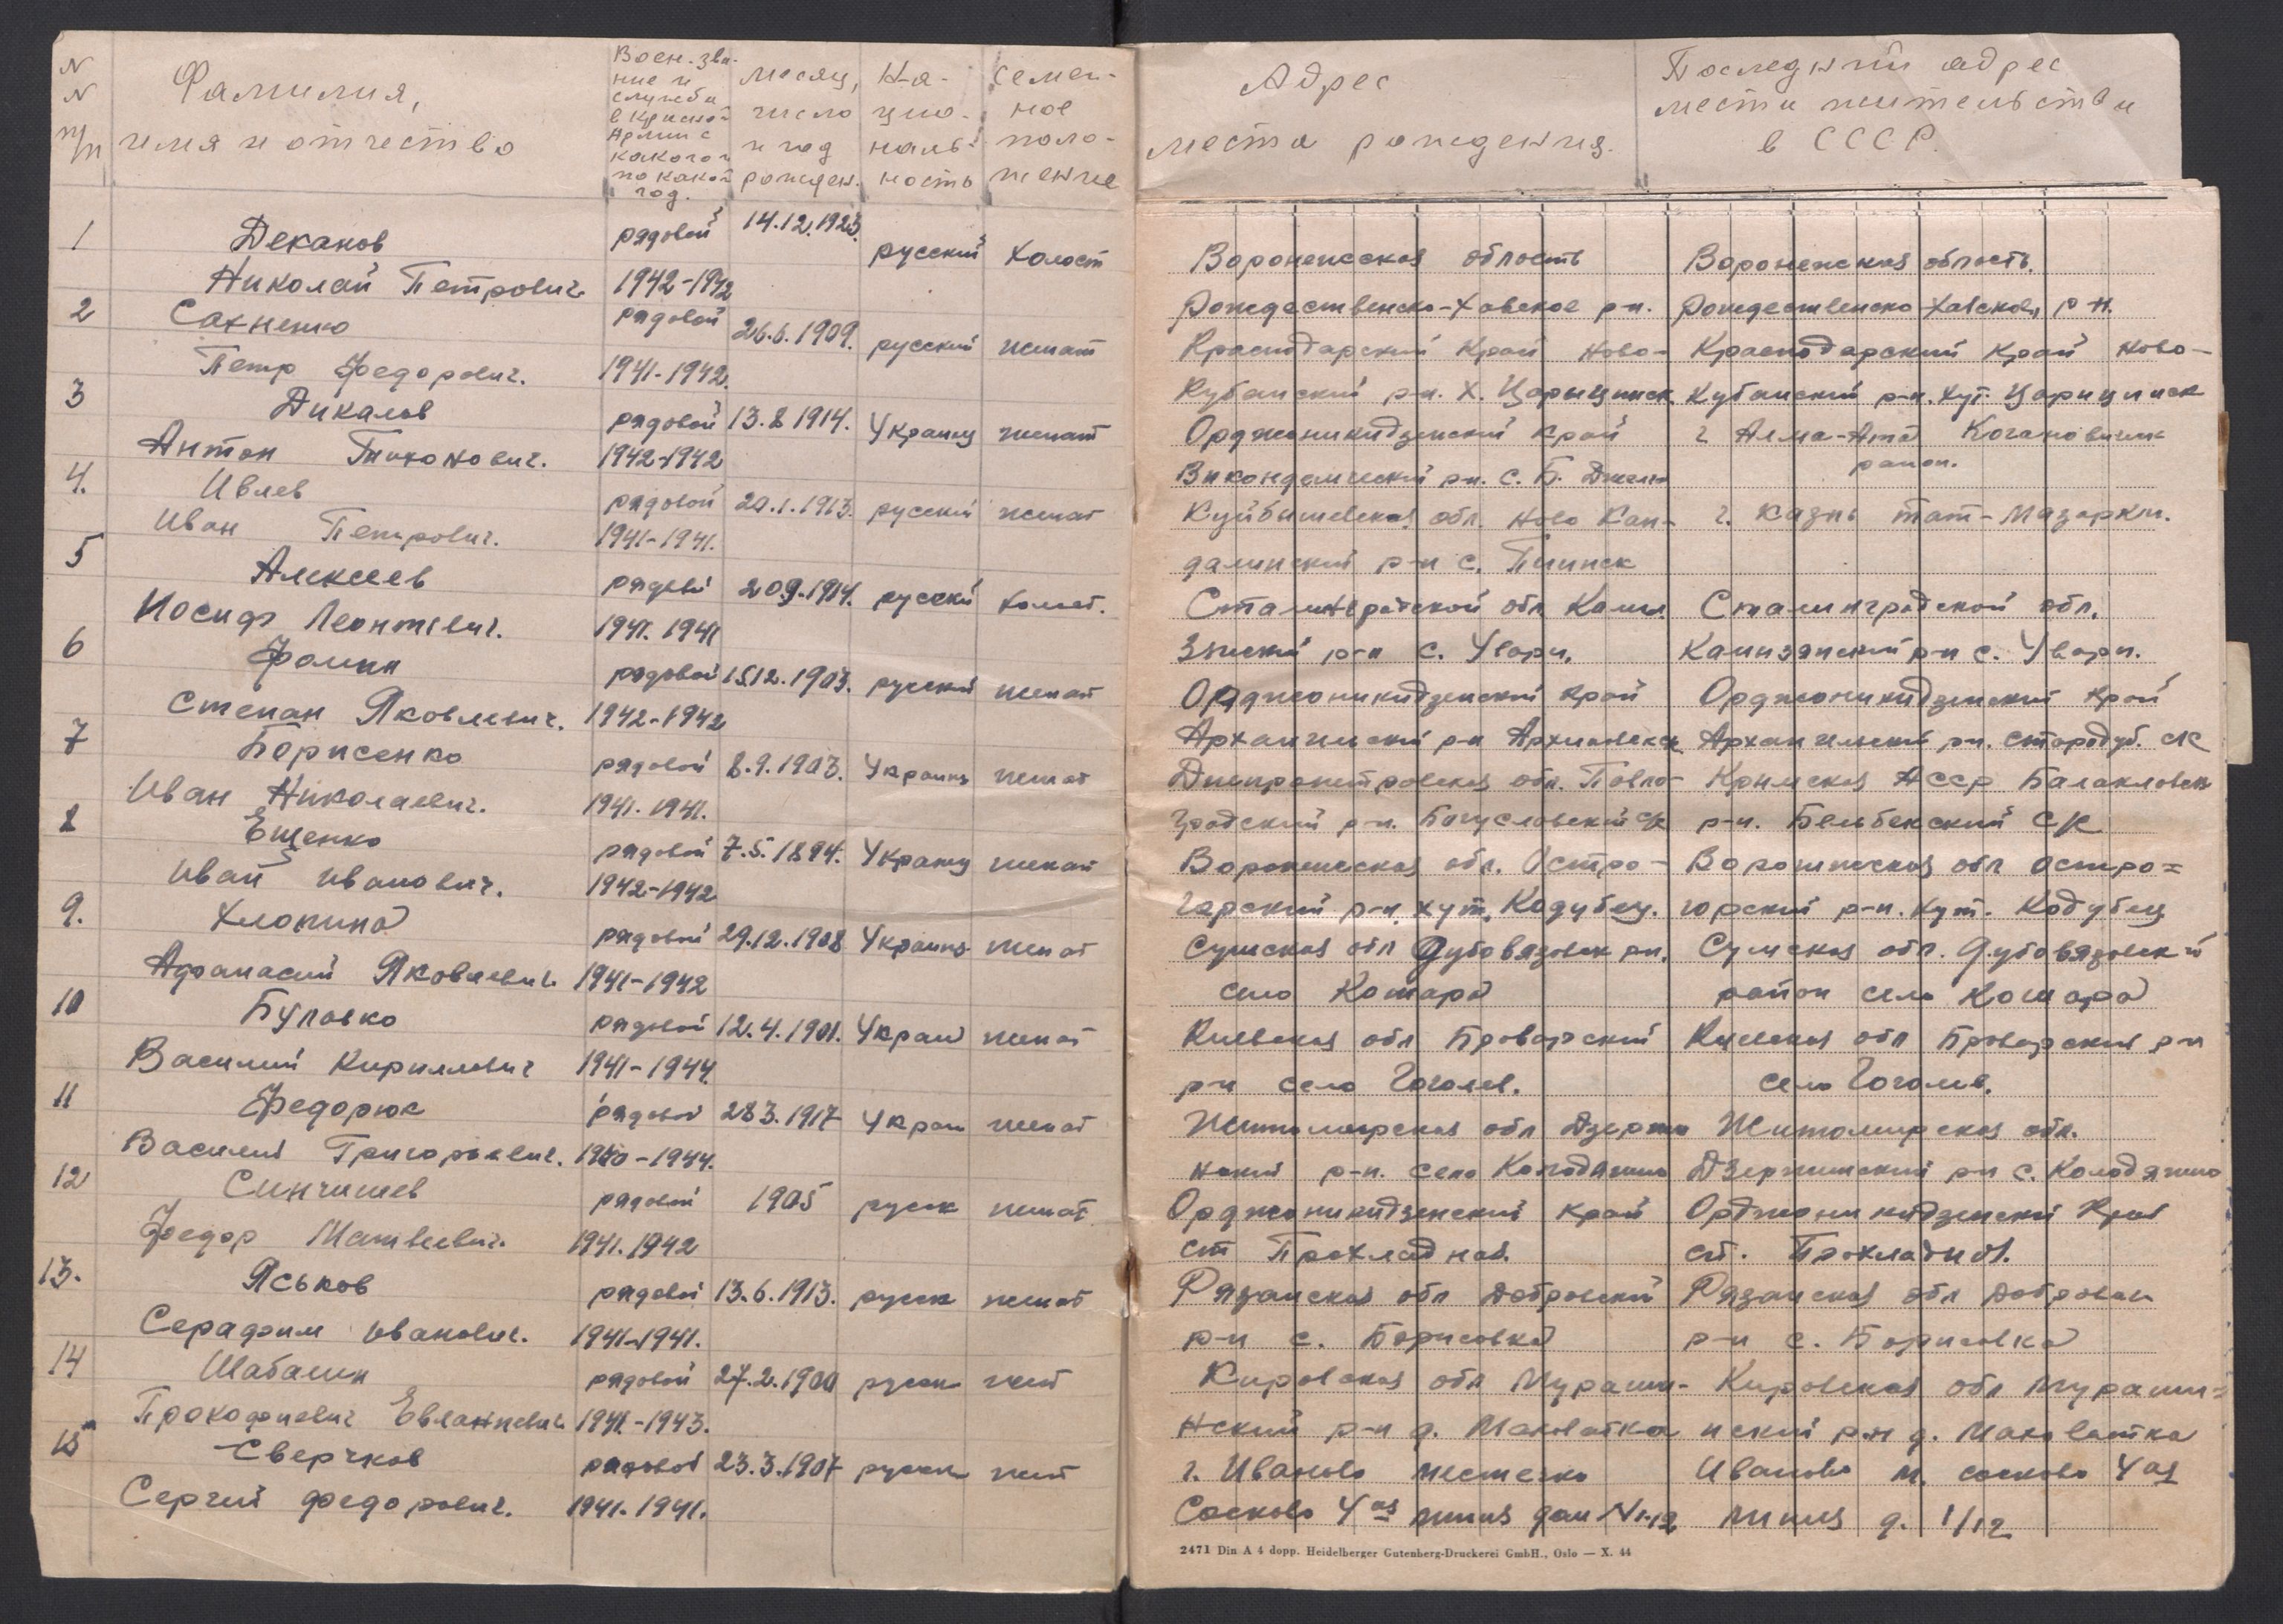 N N п/п
Фамилия, имя и отчество
Воен. звание и служба в Красной Армии с какого и по какой год.
Месяц, число и год рожден.
Национальность
Семейное положение
Адрес места рождения.
Последний адрес места жительства в СССР.
1 Деканов рядовой 14.12.1923. русский холост Воронежская область Воронежская область.
Николай Петрович 1942-1942 Рождественско-Хавское рн. Рождественско Хавское, р-н.
2 Сахненко рядовой 26.6.1909. русский женат Краснодарский Край Ново- Краснодарский край Ново-
Петр Федорович. 1941-1942. Кубанский р-н. Х. Царыцинск Кубанский р-н. хут. Царицинск
3 Дикалов рядовой 13.8 1914. Украинц женат Орджоникидзенский край г Алма-Ата
Антон Тихонович. 1942-1942 р-н. С. Б. район.
4. Ивлев рядовой 20.1.1913. русский женат Куйбишевская обл. Ново Кан- г. Казнь тат-
Иван Петрович. 1941-1941. далинский р-н с.
5 Алексеев рядовй 20.9.1914. русский холост. Сталинградской обл. Сталинградской обл.
Иосиф Леонтевич. 1941. 1941 р-н с. Увари. р-н с. Увари.
6 Фомин рядовой 15.12.1903. русский женат Орджоникидзенский край Орджоникидзенский край
Степан Яковлевич. 1942-1942 Архангильский р-н Архангильский рн. стародуб. с/с
7 Борисенко рядовой 8.9.1903. Украинц женат Днепропетровская обл. Павло- Кримская АССР Балакловск
Иван Николаевич. 1941. 1941. градский р-н. Богуславский с/с р-н. Бельбекский с/с
8 Ещенко рядовой 7.5.1894. Украинц женат Воронежская обл. Остро- Воронежская обл Остро=
Иван Иванович. 1942-1942 гарский р-н. хут. Кодубец. горский р-н. хут. Кодубец
9. Хлопина рядовой 29.12.1908 Украинц женат Сумская обл Дубовязовск рн. Сумская обл. Дубовязовск-й
Афанасий Яковлевич. 1941-1942 село Кошара район село Кошара
10 Булавко рядовой 12.4.1901. Украи женат Киевская обл Броварский Киевская обл Броварский р-н
Василий Кириллович 1941-1944. р-н село Гоголев. село Гоголев.
11 Федорюк рядовой 28 3.1917 Украи женат Житомирская обл Дзержи Житомирская обл.
Василий Григорьевич. 1940-1944. нский р-н. село Колодяжно Дзержинский р-н с. Колодяжно
12 Синчишев рядовой 1905 руск женат Орджоникидзенский край Орджоникидзенский Край
Федор Матвеевич. 1941. 1942 ст Прохладная. ст. Прохладная.
13. Яськов рядовой 13.6.1913. руск женат Рязанская обл Добровский Рязанская обл Добровск
Серафим Иванович. 1941-1941. р-н с. Борисовка р-н с. Борисовка
14 Шабалин рядовой 27.2.1900 руск жент Кировская обл Мураши- Кировская обл Мураши=
Прокофиевич 1941-1943. нский р-н д. Маковатка нский р-н д. Маковатка
15 Сверчков рядовой 23.3.1907 руск жент г. Иваново местечко Иваново м. соснова 4ая
Сергей Федорович. 1941. 1941. Соснова 4ая линия дом № 12 линия д. 1/12
2471 Din A 4 dopp. Heidelberger Gutenberg-Druckerei GmbH., Oslo — X. 44